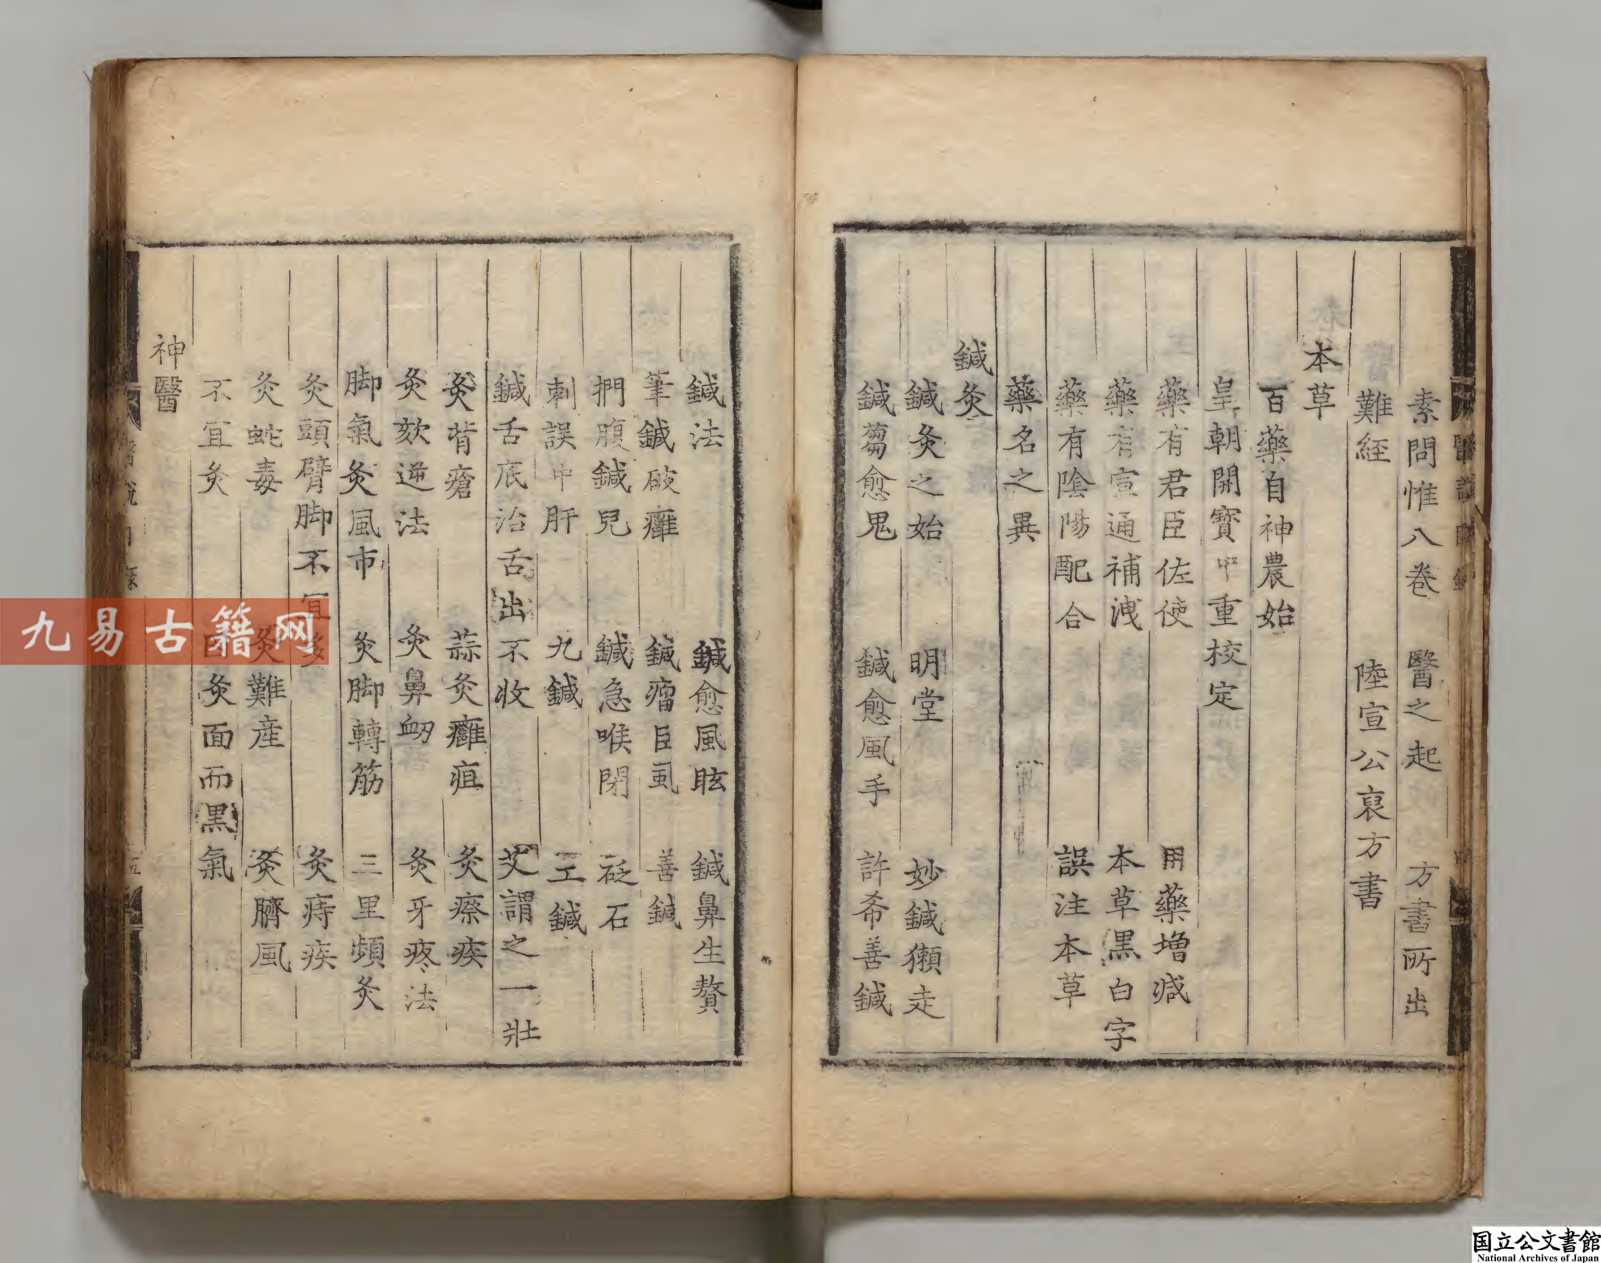 素問惟八卷　醫之起　方書所出
難經　陸宣公裒方書
本草
百藥自神農始
皇朝開寶中重校定
藥有君臣佐使　用藥增減
藥有宣通補洩　本草黑白字
藥有陰陽配合　誤注本草
藥名之異
鍼灸
鍼灸之始　明堂　妙鍼獺走
鍼芻愈鬼　鍼愈風手　許希善鍼
鍼法　鍼愈風眩　鍼鼻生贅
筆鍼破癰　鍼瘤巨虱　善鍼
捫腹鍼兒　鍼急喉閉　砭石
刺誤中肝　九鍼　工鍼
鍼舌底治舌出不收　艾謂之一壯
灸背瘡　蒜灸癰疽　灸瘵疾
灸欬逆法　灸鼻衂　灸牙疼法
脚氣灸風市　灸脚轉筋　三里頻灸
灸頭臂脚不宜多　灸痔疾
灸蛇毒　灸難産　灸臍風
不宜灸　灸面而黑氣
神醫
醫說目録
五
九易古籍网
国立公文書館
National Archives of Japan